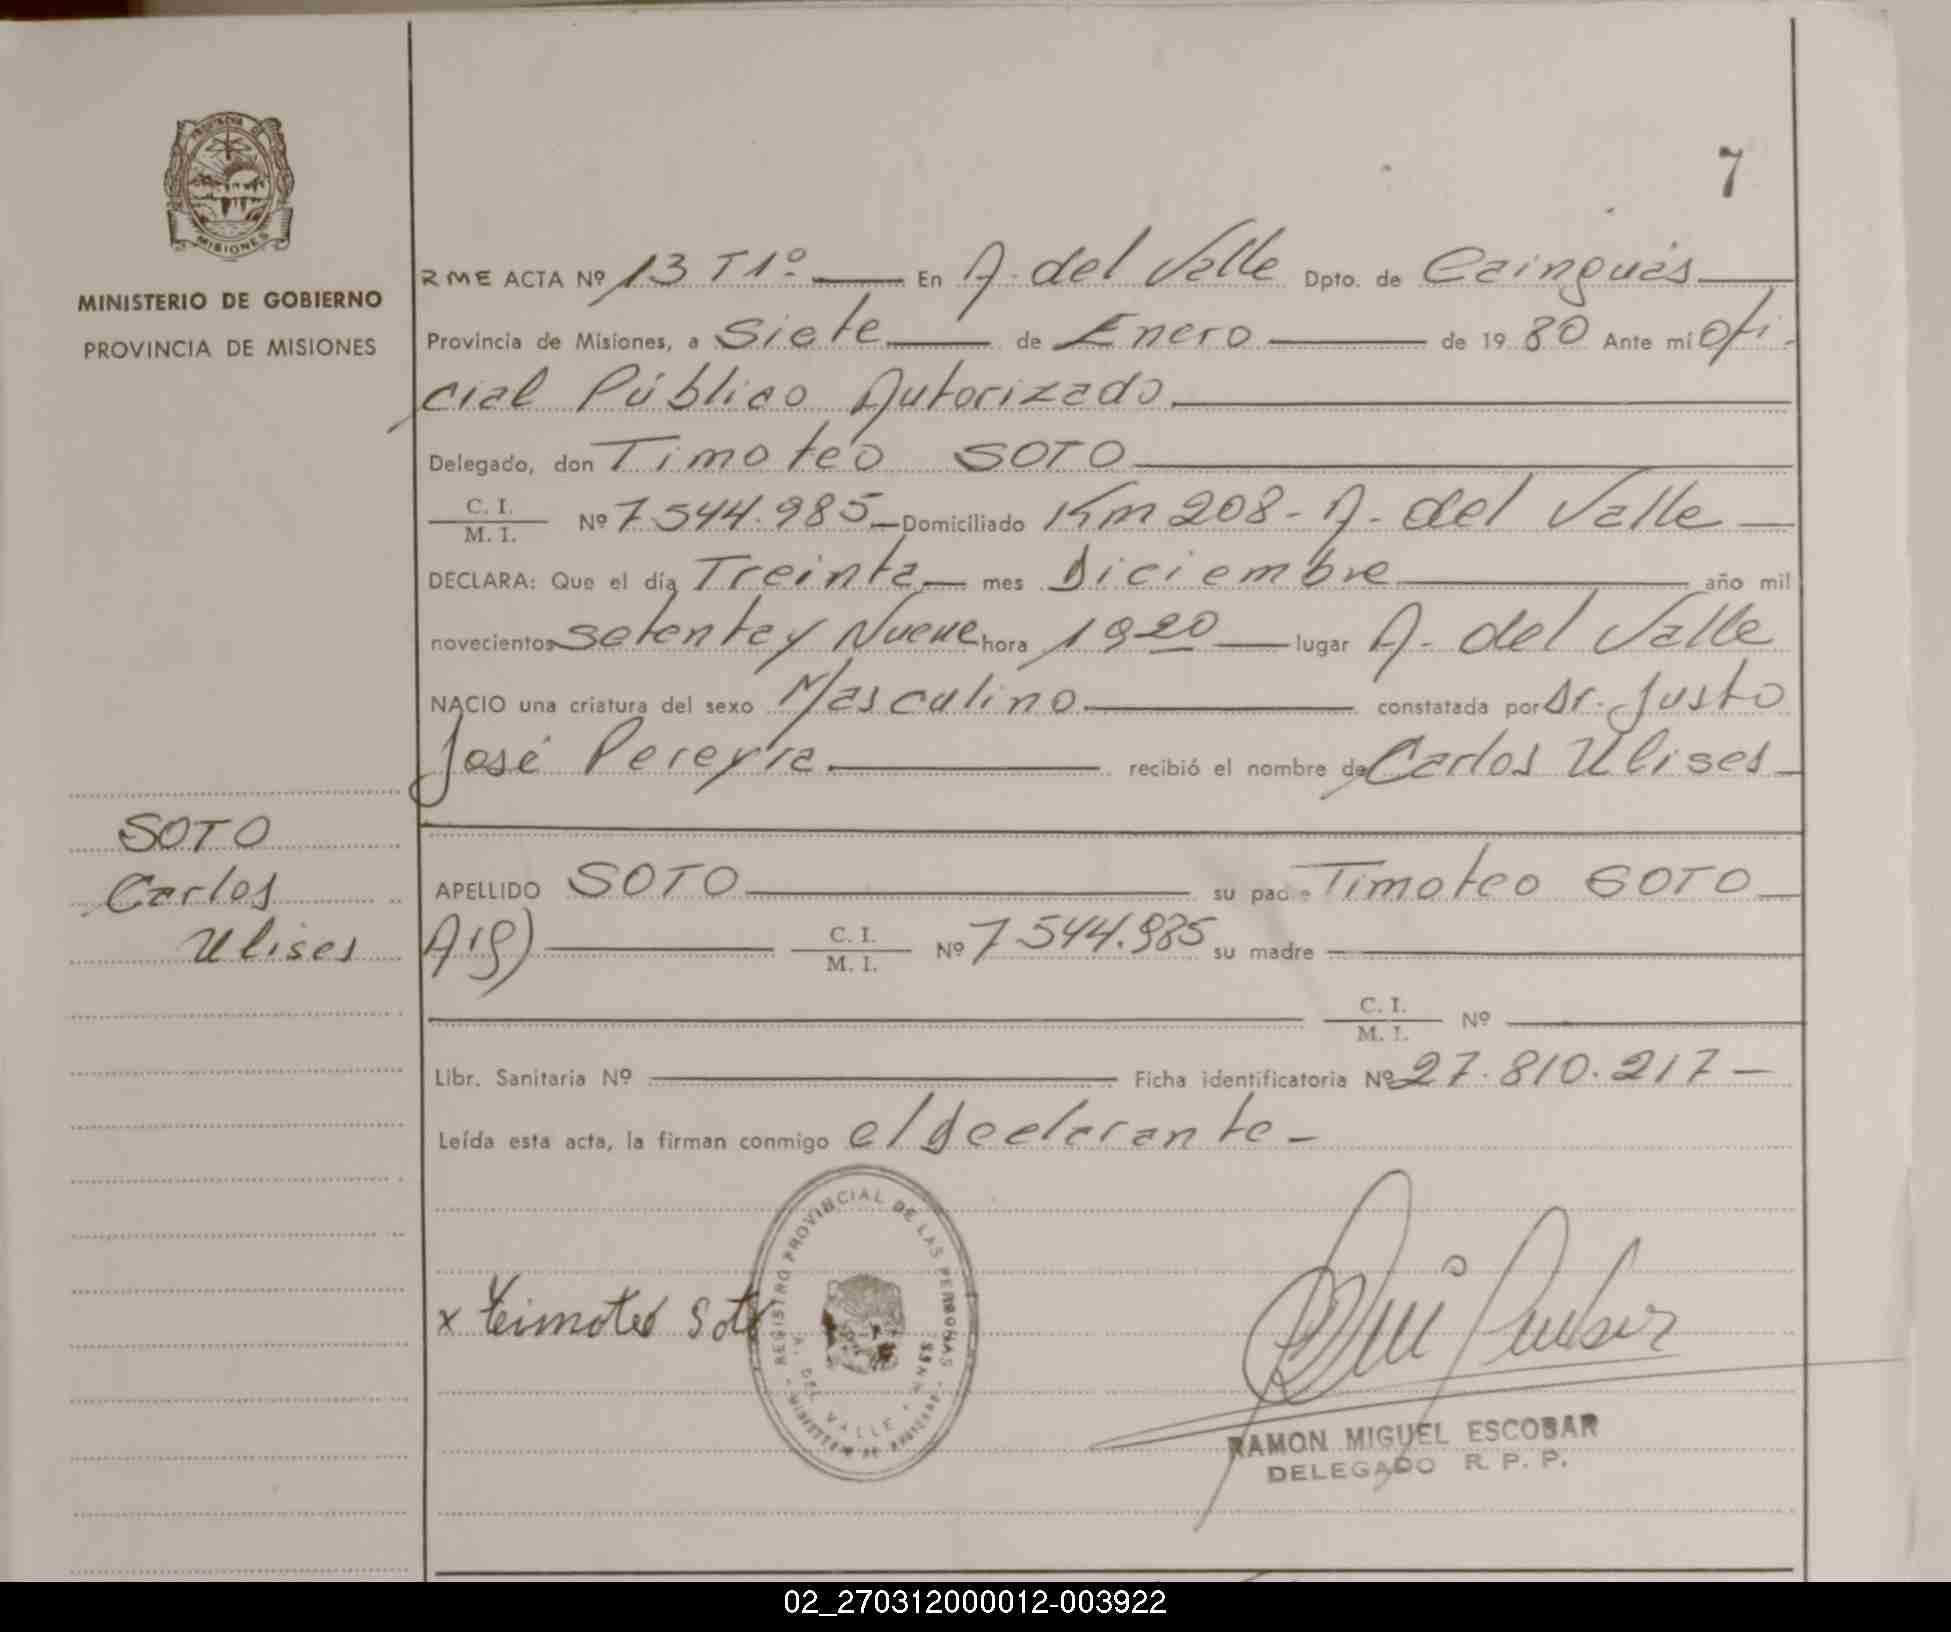 PROVINCIA DE
MISIONES
MINISTERIO DE GOBIERNO
PROVINCIA DE MISIONES
7
RME ACTA Nº 13 T1º En A. del Valle Dpto. de Cainguás
Provincia de Misiones, a Siete de Enero de 1980 Ante mi ofi-
cial Público Autorizado
Delegado, don Timoteo SOTO
C. I.
M. I. Nº 7.544.985 Domiciliado Km 208 - A. del Valle
DECLARA: Que el día Treinta mes Diciembre año mil
novecientos setenta y Nueve hora 1920 lugar A. del Valle
NACIO una criatura del sexo Masculino constatada por Dr. Justo
José Pereyra recibió el nombre de Carlos Ulises
SOTO
Carlos
Ulises
APELLIDO SOTO su padre Timoteo SOTO
Arg) C. I.
M. I. Nº 7.544.985 su madre
C. I.
M. I. Nº
Libr. Sanitaria Nº Ficha identificatoria Nº 27.810.217 -
Leída esta acta, la firman conmigo el declarante -
REGISTRO PROVINCIAL DE LAS PERSONAS
A. DEL VALLE
MINISTERIO DE GOBIERNO
x Teimoteo Soto
RAMON MIGUEL ESCOBAR
DELEGADO R. P. P.
02_270312000012-003922